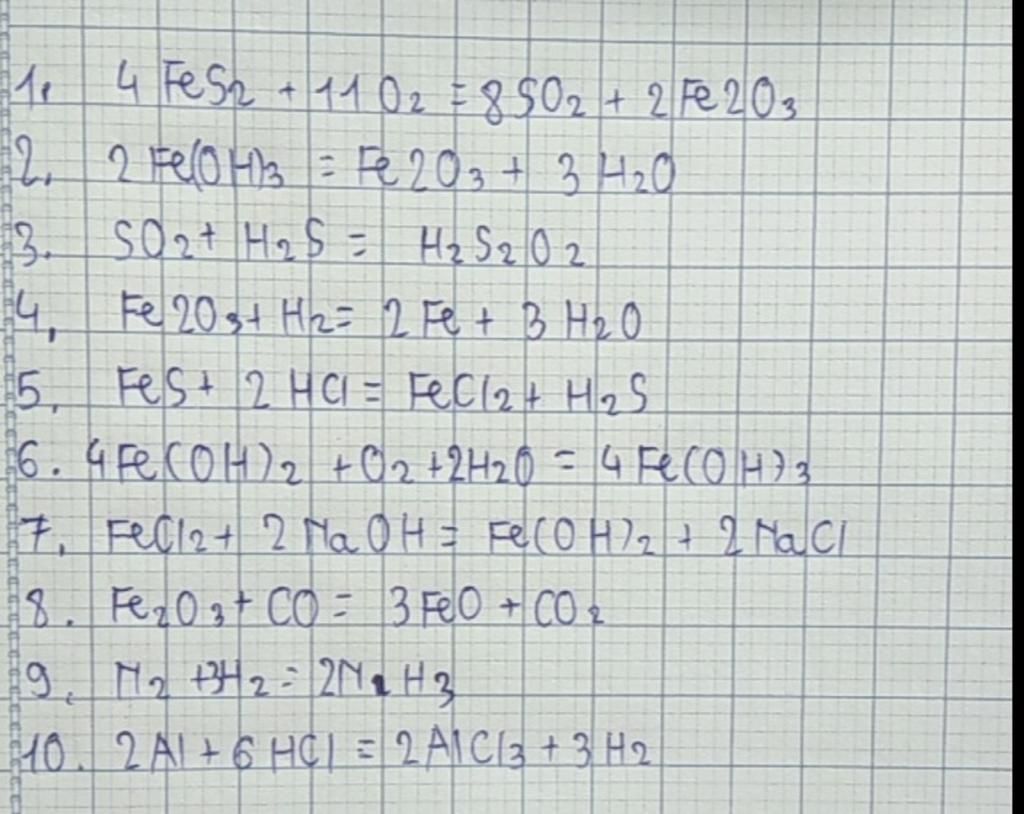 1. 4 FeS2 + 11 O2 = 8 SO2 + 2 Fe2O3
2. 2 Fe(OH)3 = Fe2O3 + 3 H2O
3. SO2 + H2S = H2S2O2
4. Fe2O3 + H2 = 2 Fe + 3 H2O
5. FeS + 2 HCl = FeCl2 + H2S
6. 4 Fe(OH)2 + O2 + 2H2O = 4 Fe(OH)3
7. FeCl2 + 2 NaOH = Fe(OH)2 + 2 NaCl
8. Fe2O3 + CO = 3 FeO + CO2
9. N2 + 3H2 = 2N H3
10. 2 Al + 6 HCl = 2 AlCl3 + 3 H2